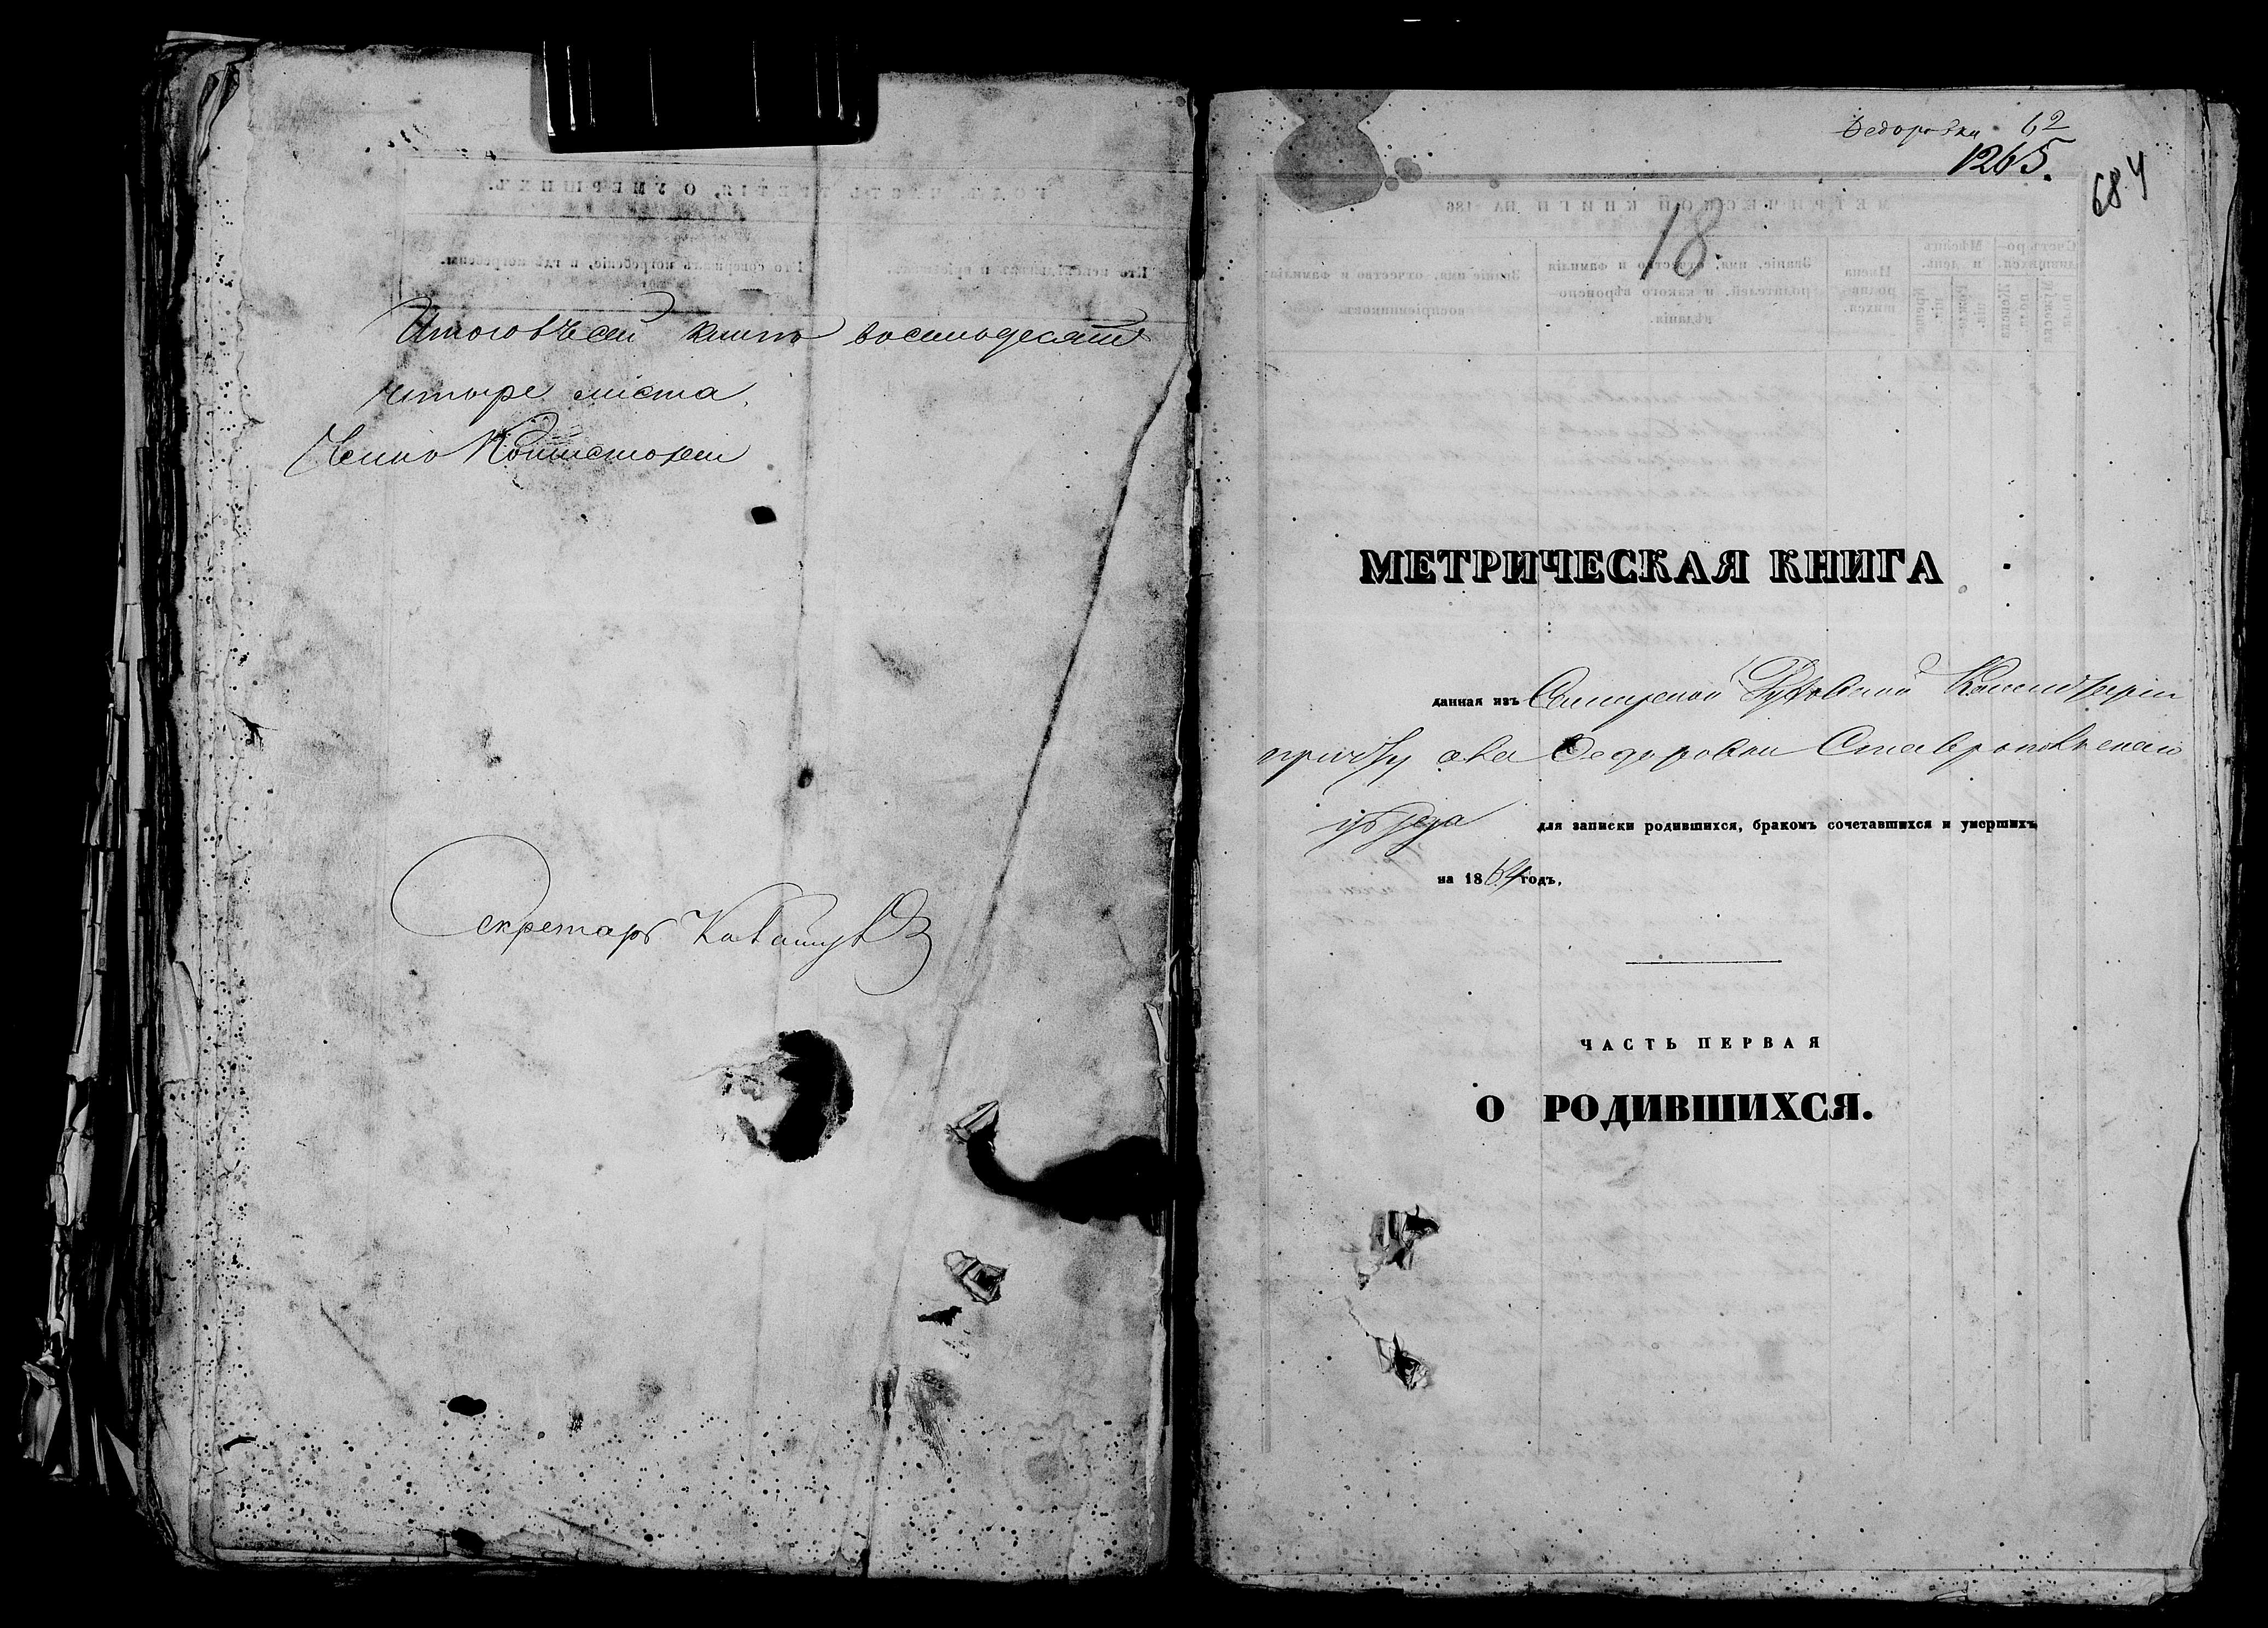 Итого въ сей книгѣ восемьдесятъ
четыре листа.
Членъ
Секретарь
Федоровки 62
1265.
684
18.
МЕТРИЧЕСКАЯ КНИГА
данная изъ Самарской Духовной Консисторіи
причту села Федоровки Ставропольскаго
уѣзда для записки родившихся, бракомъ сочетавшихся и умершихъ
на 1864 годъ.
ЧАСТЬ ПЕРВАЯ
О РОДИВШИХСЯ.